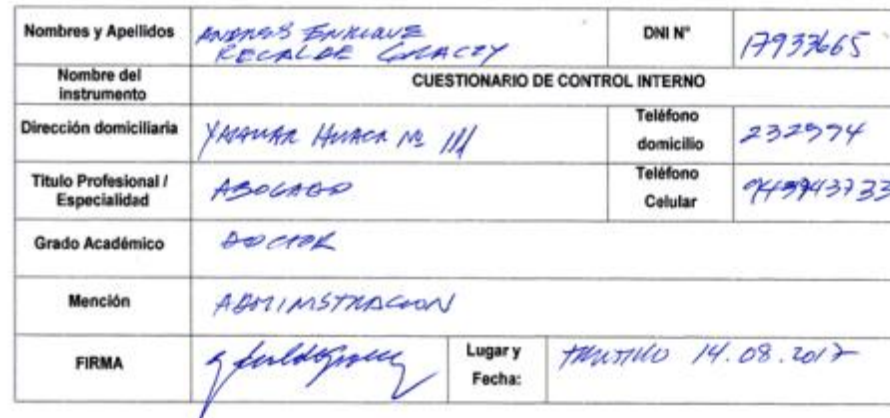 Nombres y Apellidos ANDRES ENRIQUE DNI N° 17933665
RECALDE GRACEY
Nombre del instrumento CUESTIONARIO DE CONTROL INTERNO
Dirección domiciliaria YAHUAR HUACA Nº 111 Teléfono domicilio 232574
Titulo Profesional / Especialidad ABOGADO Teléfono Celular
Grado Académico DOCTOR
Mención ADMINISTRACION
FIRMA Lugar y Fecha: TRUJILLO 14.08.2017